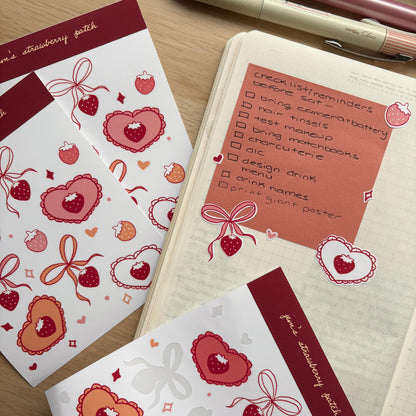 jin's strawberry patch
checklist/reminders
before sat —
□ bring camera+battery
□ hair tinsels
□ test makeup
□ bring matchbooks
□ charcuterie
□ alc
□ design drink
menu
□ drink names
□ print giant poster
jin's strawberry patch